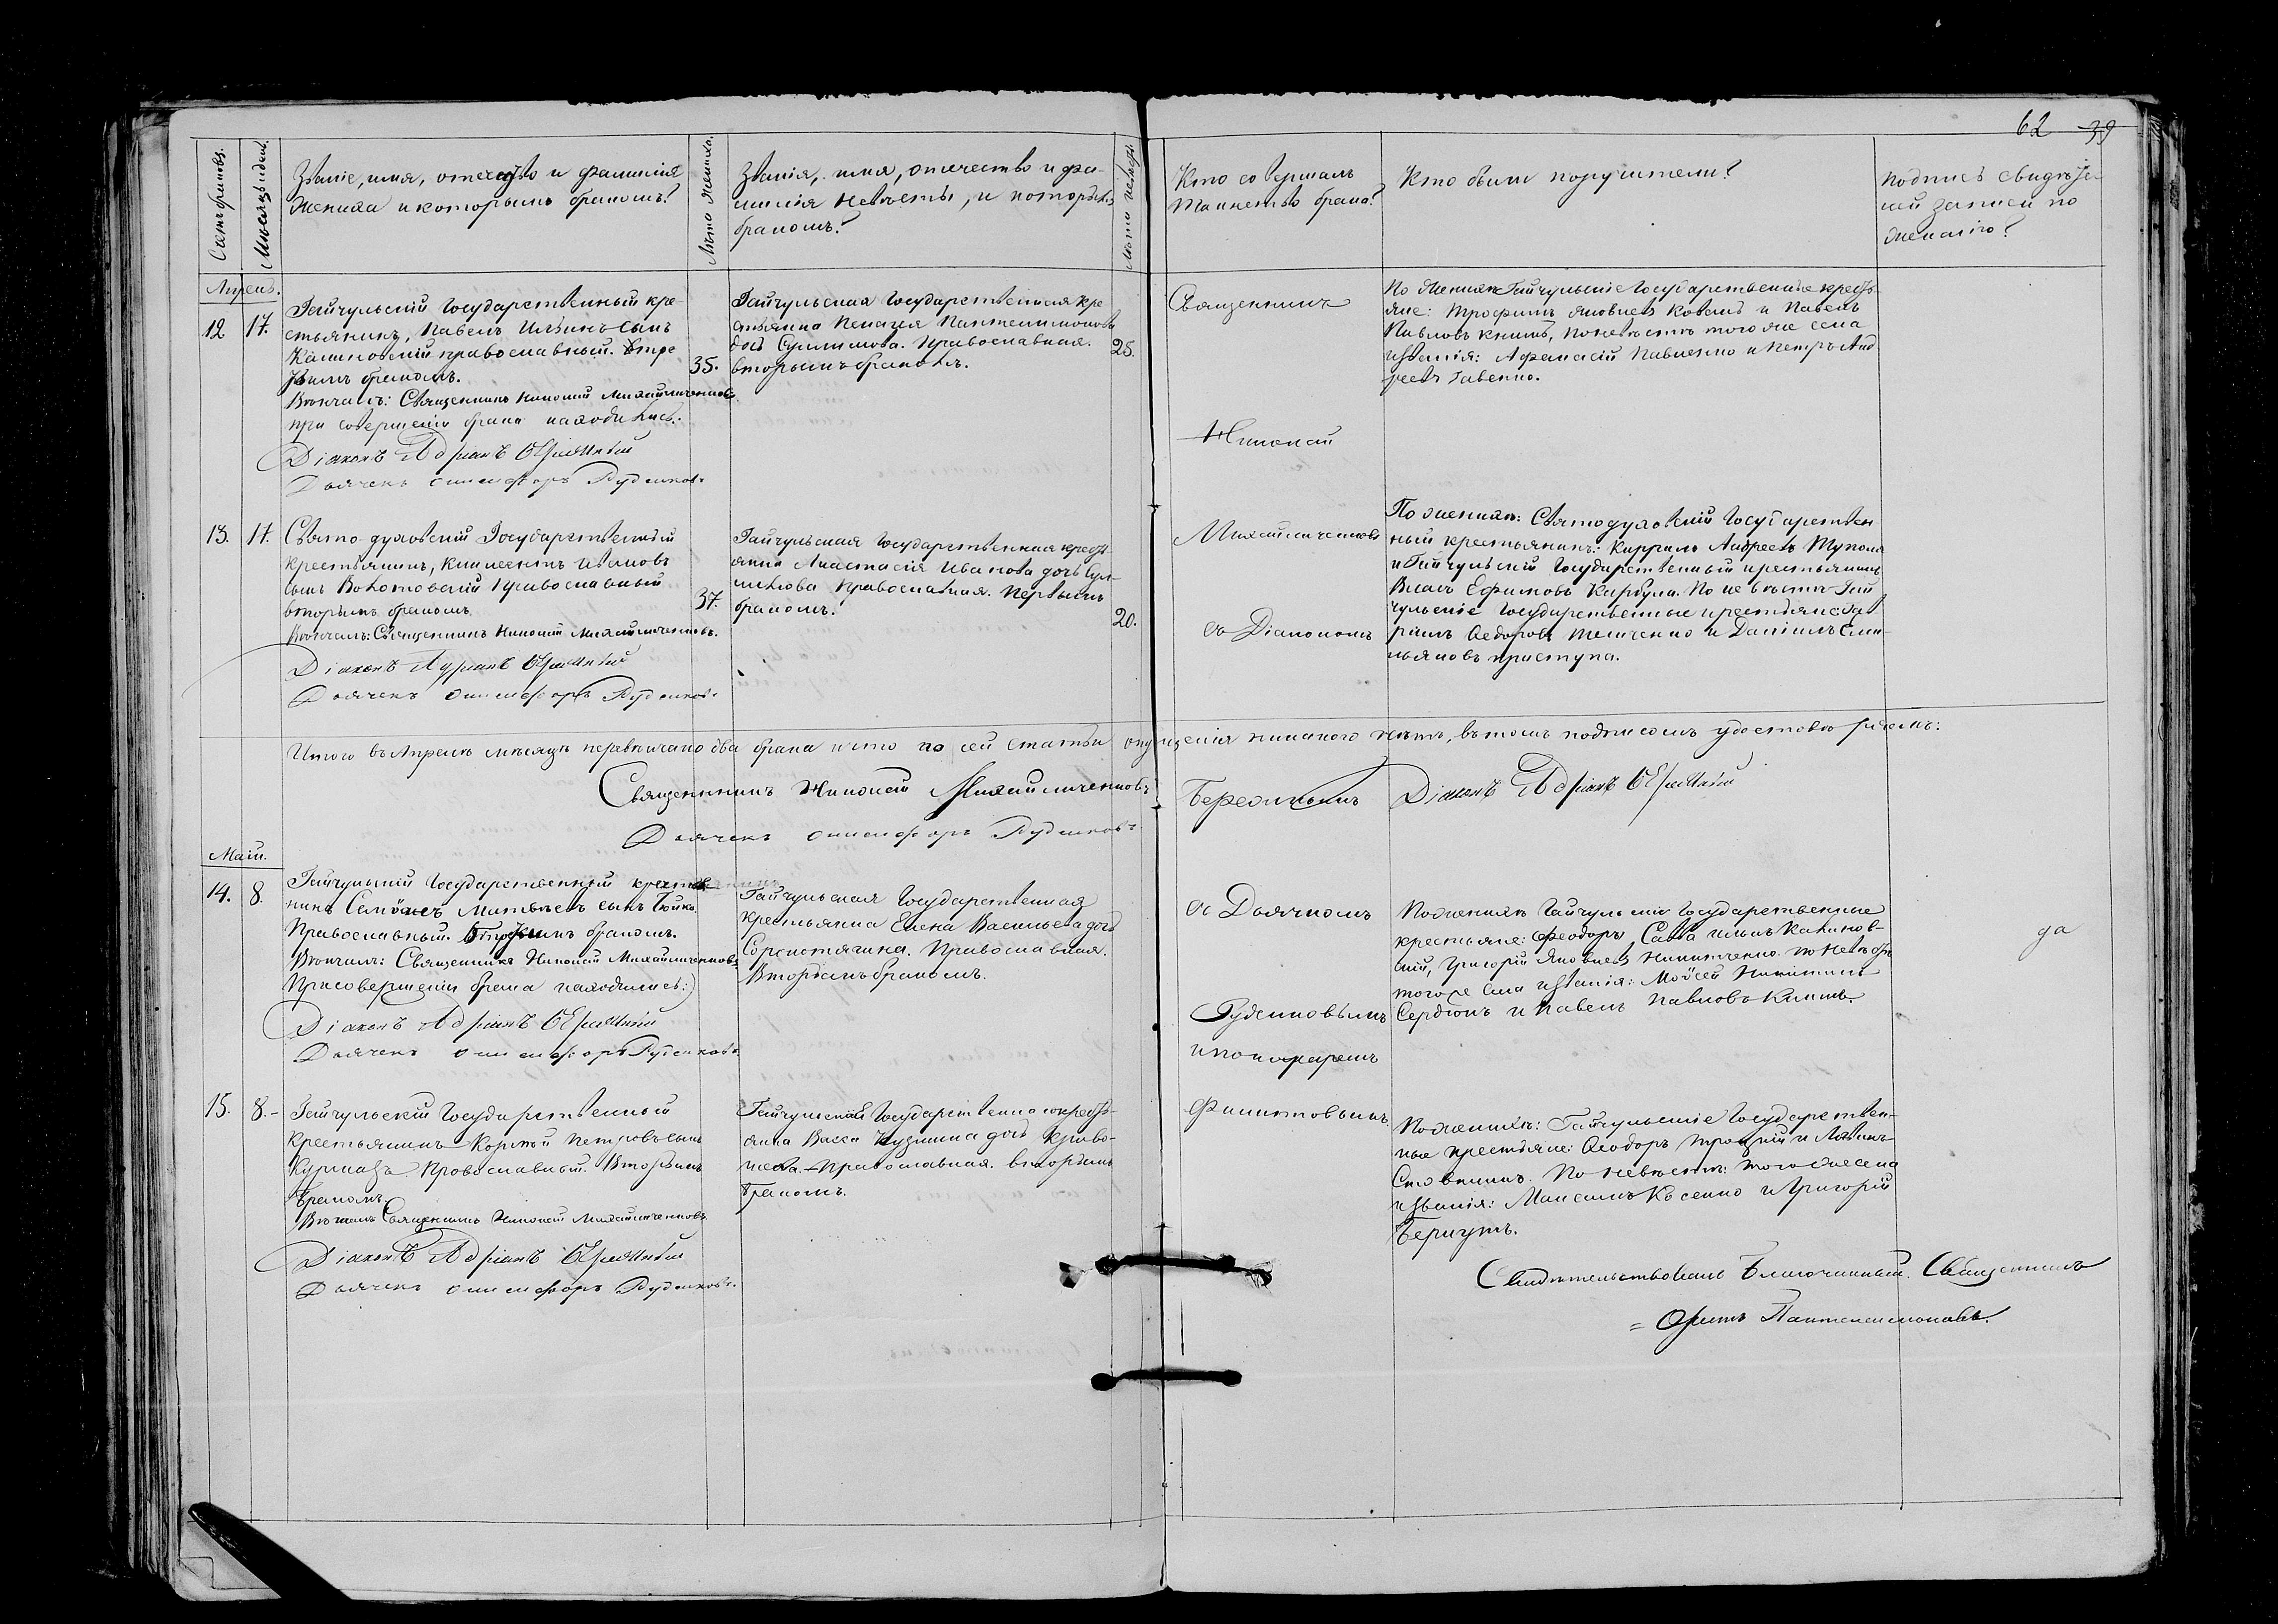 62 39
Счетъ браковъ.
Мѣсяцъ и день.
Званіе, имя, отечество и фамилія
жениха и которымъ бракомъ?
Лѣта жениха.
Званія, имя, отчество и фа-
милія невѣсты, и которымъ
бракомъ?
Лѣта невѣсты.
Кто совершалъ
таинство брака?
Кто были поручители?
Подпись свидѣте-
лей записи по
желанію?
Апрель.
12 17.
Гайчульскій Государственный кре
стьянинъ, Павелъ Ильинъ сынъ
Калиновскій православный. Вто
рымъ бракомъ.
35.
Вѣнчалъ: Священникъ Николай Михайличенковъ
при совершеніи брака находились:
Діаконъ Адріанъ
Дьячекъ Онисифоръ Руденковъ
Гайчульская Государственная кре
стьянка Пелагея Пантелимонова
дочь Сулимова. Православная.
вторымъ бракомъ.
25.
Священникъ
Николай
По женихѣ Гайчульскіе Государственные кресть
яне: Трофимъ Яковлевъ Коваль и Павелъ
Павловъ Книшъ, по невѣстѣ того же села
и званія: Афанасій Павленко и Петръ Анд
реевъ Гавенко.
13. 17.
Свято-духовскій Государственный
крестьянинъ, Климентъ Ивановъ
сынъ Волотовскій Православный
вторымъ бракомъ
37.
Вѣнчалъ: Священникъ Николай Михайличенковъ.
Діаконъ Адріанъ
Дьячекъ Онисифоръ Руденковъ
Гайчульская Государственная кресть
янка Анастасія Иванова дочь Сул-
имова Православная. Первымъ
бракомъ.
20.
Михайличенковъ
съ Діакономъ
По женихѣ: Святодуховскій Государствен
ный крестьянинъ: Кириллъ Андреевъ Тупола
и Гайчульскій Государственный крестьянинъ
Власъ Ефимовъ Кирбула. По невѣстѣ Гай
чульскіе Государственные крестьяне: Гав
ріилъ Федоровъ Тимченко и Даніилъ Еми-
льяновъ Приступа.
Итого въ Апрелѣ мѣсяцѣ перевѣнчано два брака и что по сей статьи опущенія никакого нѣтъ, въ томъ подписомъ удостовѣряемъ:
Священникъ Николай Михайличенковъ
Діаконъ Адріанъ
Дьячекъ Онисифоръ Руденковъ
Май.
14. 8.
Гайчульскій Государственный крестья
нинъ Матвѣевъ сынъ Бойко
Православный. Вторымъ бракомъ.
Вѣнчалъ: Священникъ Николай Михайличенковъ
При совершеніи брака находились:
Діаконъ Адріанъ
Дьячекъ Онисифоръ Руденковъ
Гайчульская Государственная
крестьянка Елена Васильева дочь
Сорокотяжка. Православная.
Вторымъ бракомъ.
съ Дьячкомъ
Руденковымъ
и пономаремъ
По женихѣ Гайчульскіе Государственные
крестьяне: Феодоръ Савва Ильинъ Калинов-
скій, Григорій Яковлевъ Никитченко. По невѣстѣ
того же села и званія: Мойсей Никитинъ
Сердюкъ и Павелъ Павловъ Книшъ.
да
15. 8.-
Гайчульскій Государственный
крестьянинъ Корній Петровъ сынъ
Курмазъ Православный. Вторымъ
бракомъ
Вѣнчалъ Священникъ Николай Михайличенковъ
Діаконъ Адріанъ
Дьячекъ Онисифоръ Руденковъ.
Гайчульская Государственная кресть-
янка Васса Кузмина дочь Криво-
шеева. Православная. вторымъ
бракомъ.
Филиповымъ.
По женихѣ: Гайчульскіе Государствен-
ные крестьяне: Феодоръ Троцкій и
По невѣстѣ: того же села
и званія: Максимъ Косенко и Григорій
Беркутъ.
Свидѣтельствовалъ Благочинный. Священникъ
Пантелеимоновъ.